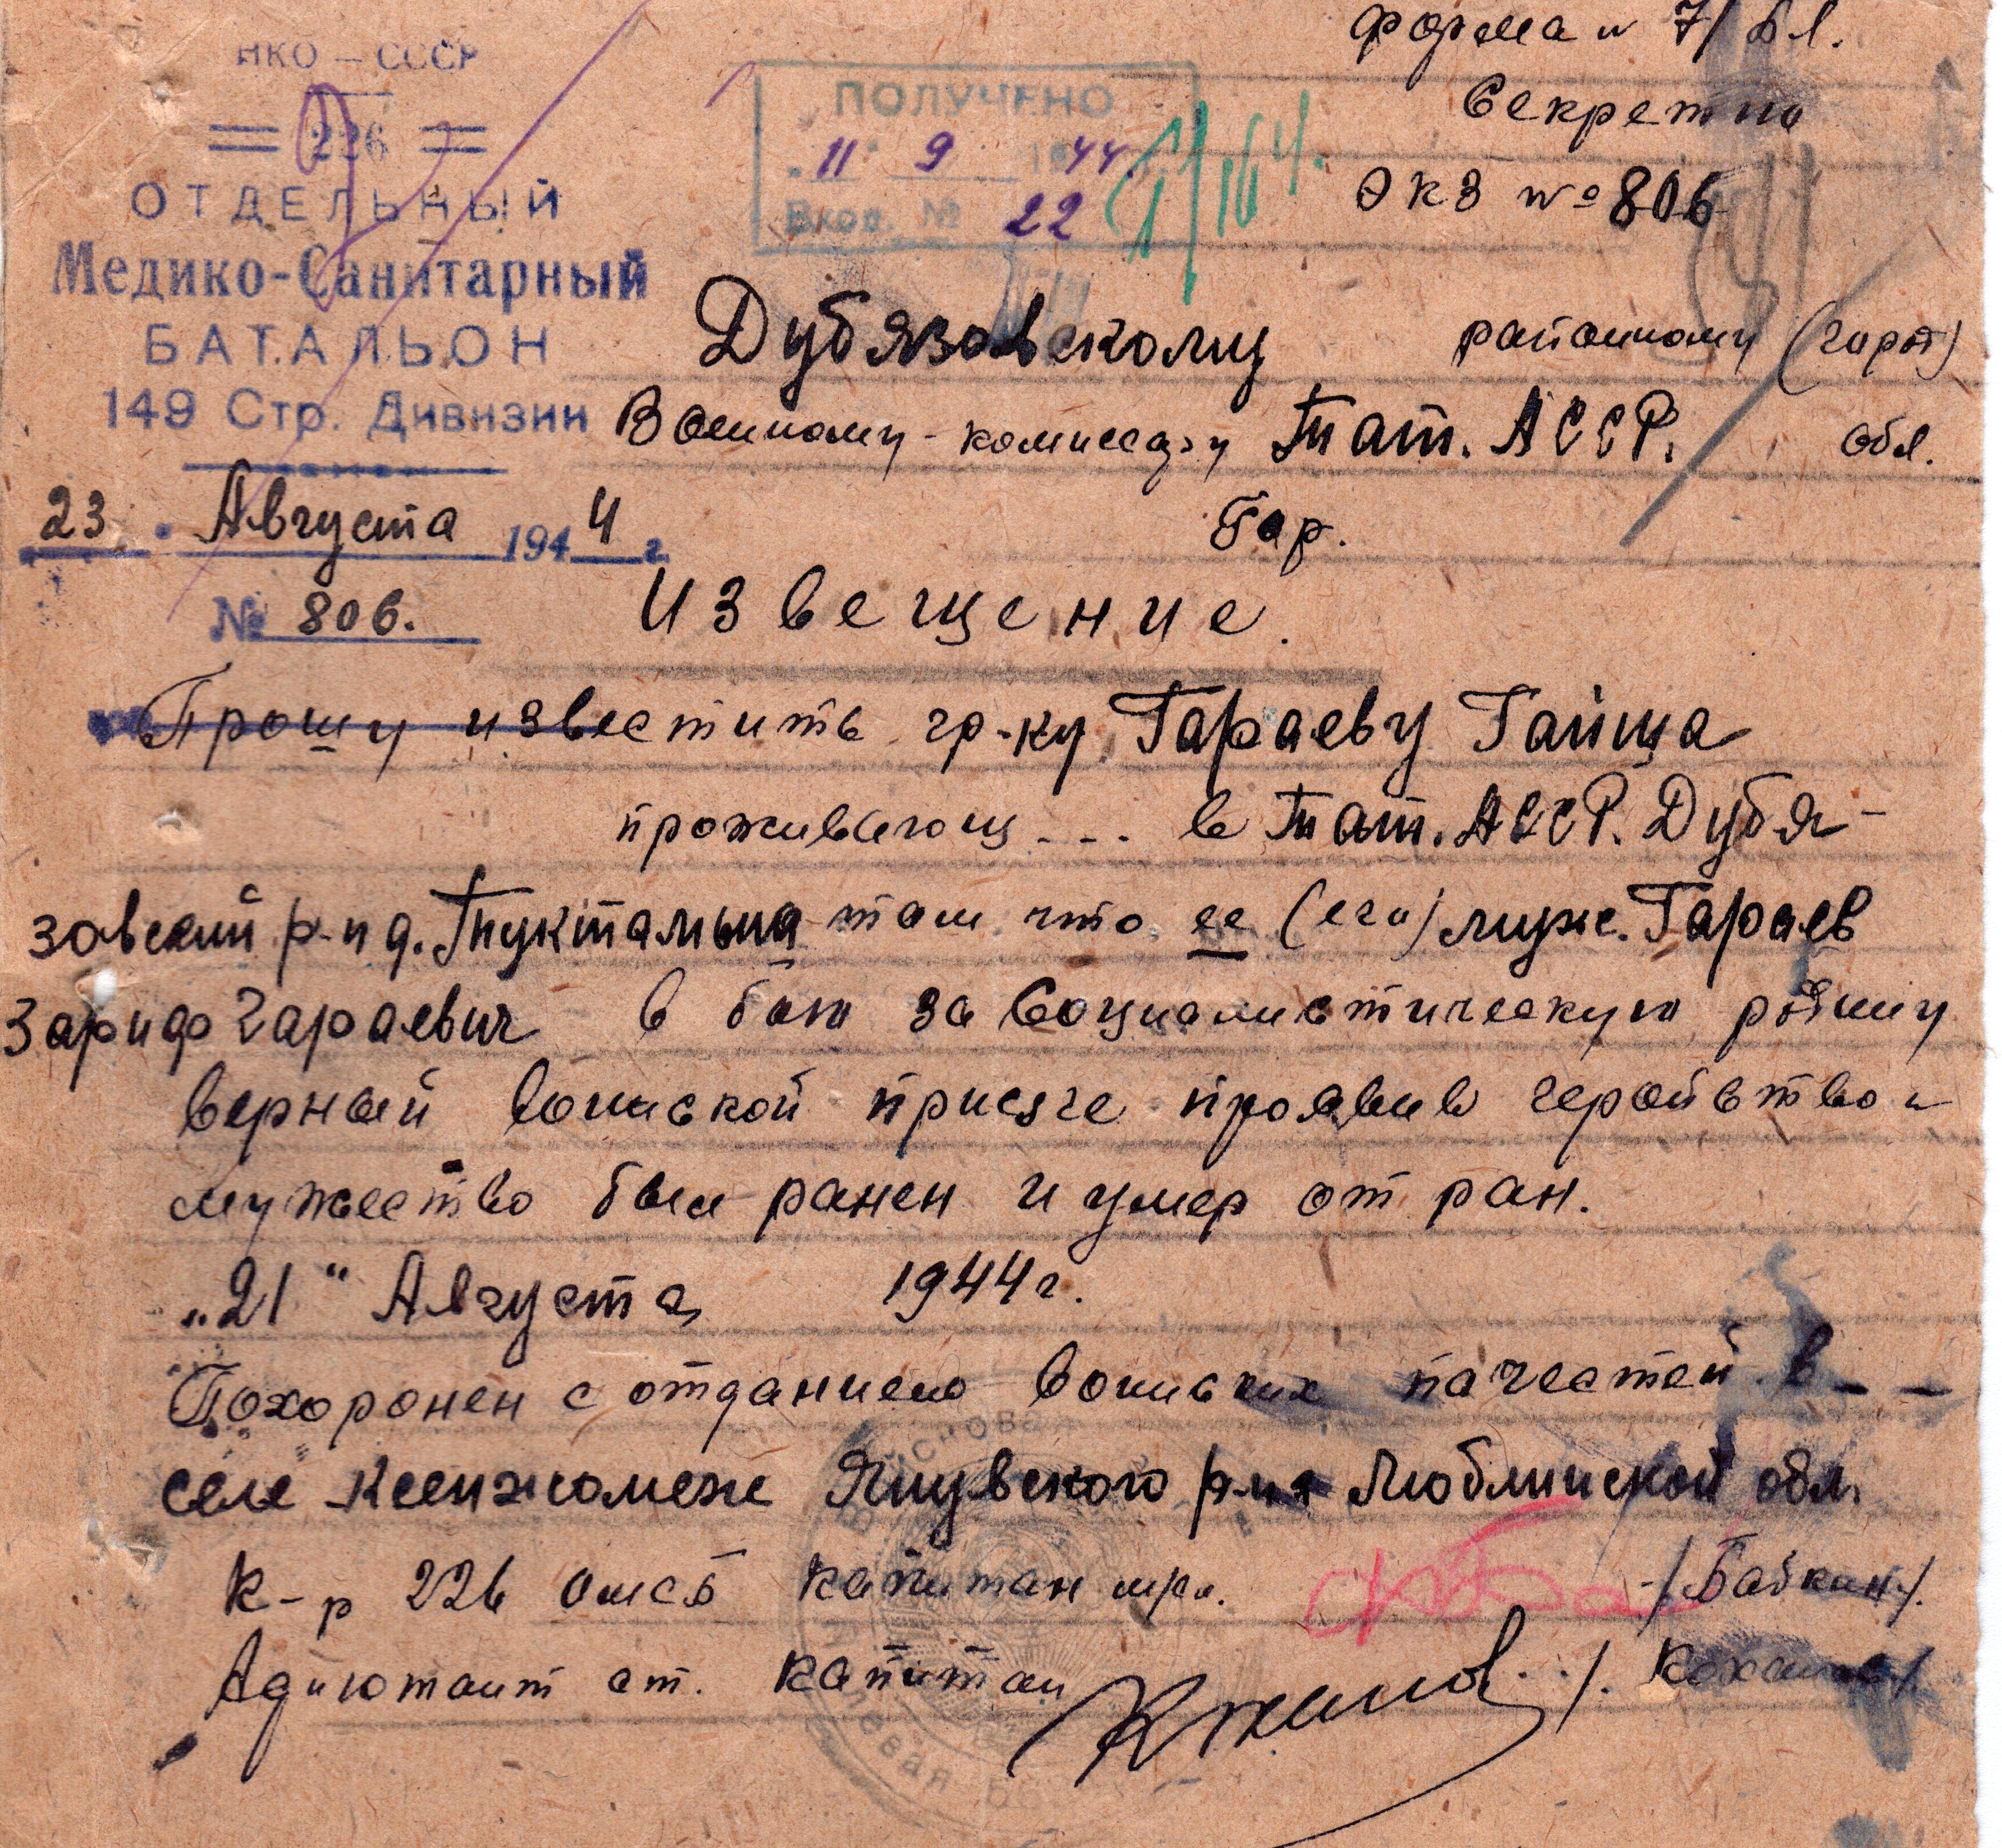 форма № 7/Бл.
Секретно
экз № 806
НКО – СССР
226
ОТДЕЛЬНЫЙ
Медико-Санитарный
БАТАЛЬОН
149 Стр. Дивизии
23 Августа 1944 г.
№ 806.
ПОЛУЧЕНО
11 9 1944
Вход. № 22
Дубязовскому районному (гор)
Военному-комиссару Тат. АССР. обл.
Гор.
Извещение.
Прошу известить гр-ку Гараеву
проживающ--- в Тат. АССР. Дубя-
зовский р-н д. там что ее (его) муж. Гараев
Зариф Гараевич в бою за Социалистическую родину
верный воинской присяге проявив геройство и
мужество был ранен и умер от ран.
„21" Августа 1944 г.
Похоронен с отданием воинских почестей в--
селе Ксенжомеже р-на Люблинской обл.
К-р 226 омсб капитан /Бабкин/.
Адъютант ст. капитан